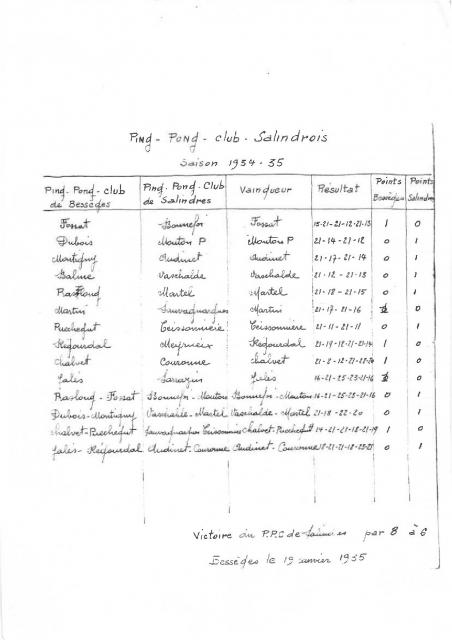 Ping - Pong - club - Salindrois
Saison 1934 - 35
Ping-Pong-club de Bessèges Ping-Pong-Club de Salindres Vainqueur Résultat Points Bessèges Points Salindres
Fossat Bonnefoi Fossat 15-21-21-12-21-13 1 0
Dubois Mouton P Mouton P 21-14-21-12 0 1
Montigny Audinet Audinet 21-17-21-14 0 1
Vaschalde Vaschalde 21-12-21-13 0 1
Martel Martel 21-18-21-15 0 1
Martin Martin 21-17-21-16 0
Puechegut Teissonnière Teissonnière 21-11-21-11 0 1
Meyrueix 21-19-12-21-21-14 1 0
Chalvet Couronne Chalvet 1 0
Jalès Jalès 16-21-25-23-21-16 0
Fossat Bonnefoi - Mouton Bonnefoi - Mouton 16-21-25-23-21-16 0 1
Dubois - Montigny Vaschalde - Martel Vaschalde - Martel 21-18-22-20 0 1
Chalvet - Puechegut Chalvet - Puechegut 14-21-21-18-21-19 1 0
Jalès - Audinet - Couronne Audinet - Couronne 0 1
Victoire du P.P.C de Salindres par 8 à 6
Bessèges le 19 janvier 1935